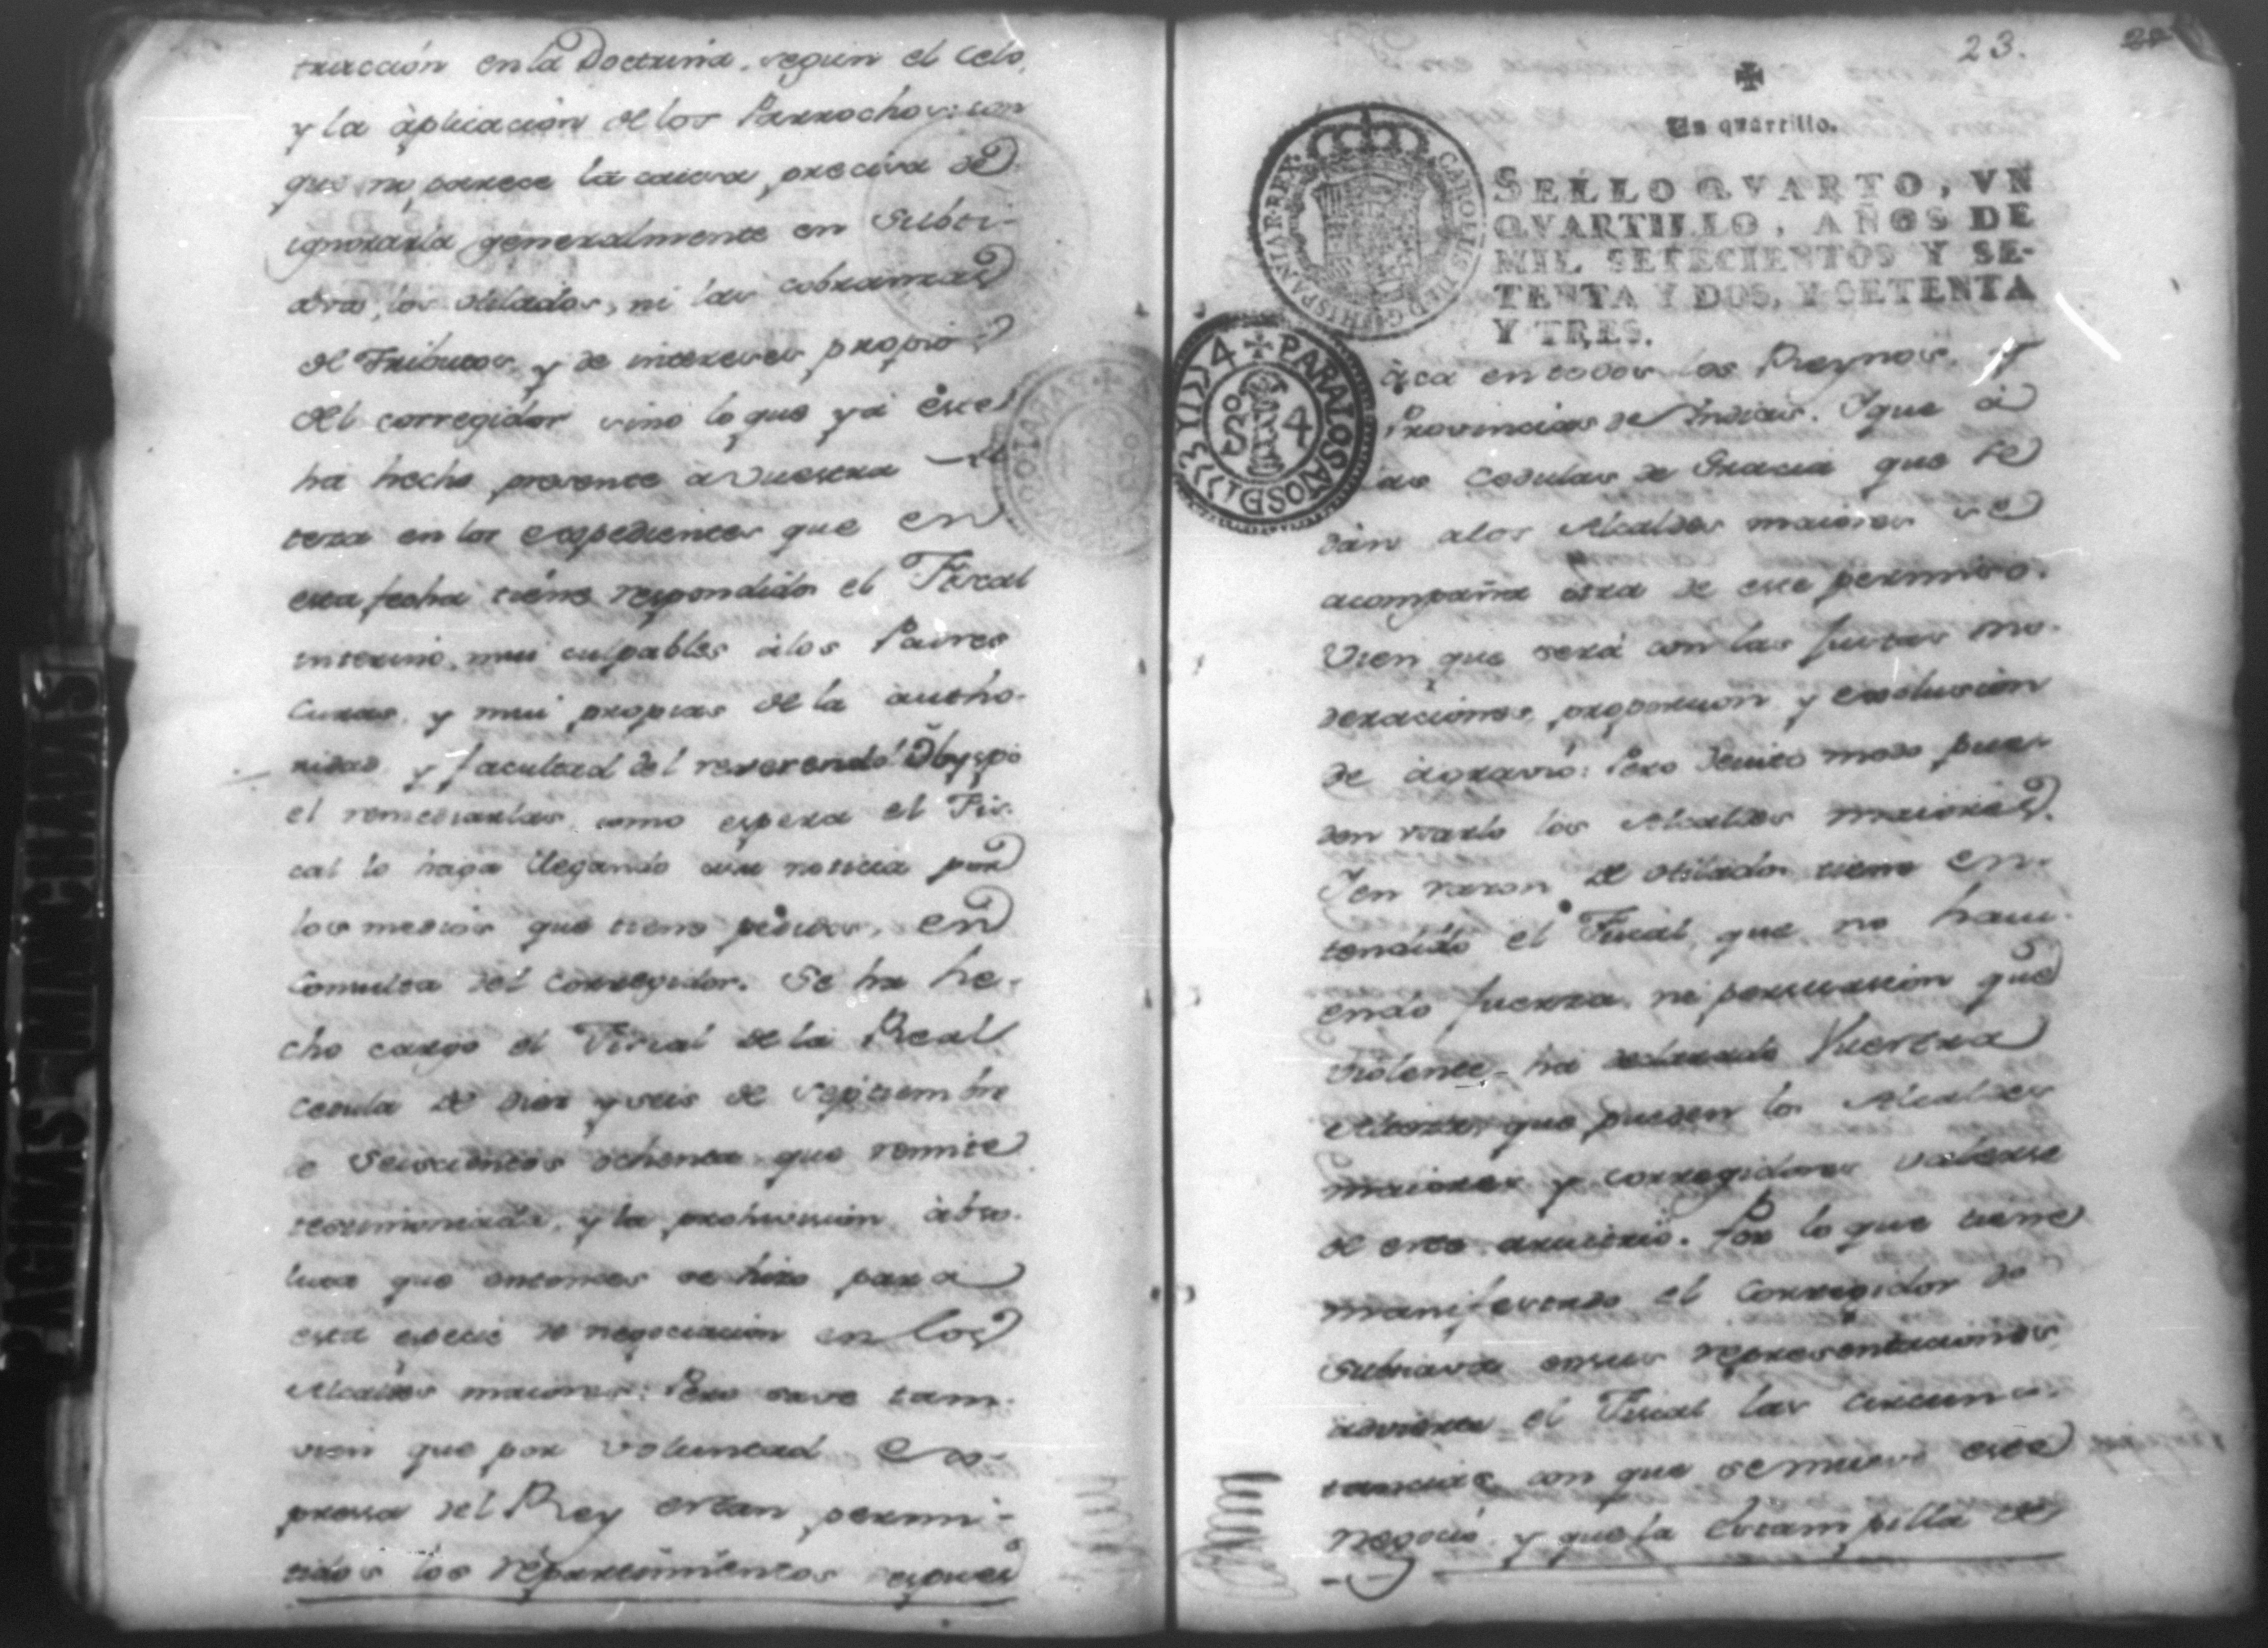 truccion en la Doctrina, segun el celo,
y la àplicacion de los Parrochos: con
que no parece la causa preciva de
ignorarla generalmente en Subti-
ava, los ôbilados, ni las cobranzas
de Tributos, y de intereses propio
del corregidor sino lo que ya êste
ha hecho presente a Vuestra Al
teza en los expedientes que en
esta fecha tiene respondido el Fiscal
interino, mui culpables àlos Padres
Curas, y mui propias de la autho-
ridad, y facultad del reverendo Obyspo
el remediarlas, como espera el Fis-
cal lo haga llegando a su noticia por
los medios que tiene pedidos, en
Consulta del Corregidor. Se ha he-
cho cargo el Fiscal de la Real
Cedula de diez y seis de Septiembre
de Seiscientos ochenta que remite
testimoniada, y la prohivicion àbso-
luta que entonces se hizo para
esta especie de negociacion en los
Alcaldes maiores: Pero save tam-
vien que por voluntad ex-
pressa del Rey estan permi-
tidos los repartimientos despues
23.
Un quartillo.
SELLO QVARTO, VN
QVARTILLO, AÑOS DE
MIL SETECIENTOS Y SE-
TENTA Y DOS, Y SETENTA
Y TRES.
CAROLUS III D G HISPANIAR REX
PARA LOS AÑOS D 1773 Y 1774
SO 4
àca en todos los Reynos, y
Provincias de Indias. Y que à
las Cedulas de Gracia que se
dàn alos Alcaldes maiores se
acompaña otra de este permiso.
Vien que serà con las justas mo-
deraciones, proporcion y exclusion
de àgravio: Pero de uico modo pue-
den usarlo los Alcaldes maiores.
Y en razon de ôbilados tiene en-
tendido el Fiscal, que no havi-
endo fuerza, ni persuasion que
violente, ha declarado Vuestra
Alteza, que pueden los Alcaldes
maiores y corregidores valerse
de este arvitrio. Por lo que tiene
manifestado el Corregidor de
Subtiava ensus representaciones,
advierte el Fiscal las circuns-
tancias con que se mueve este
negocio, y que la Estampilla de